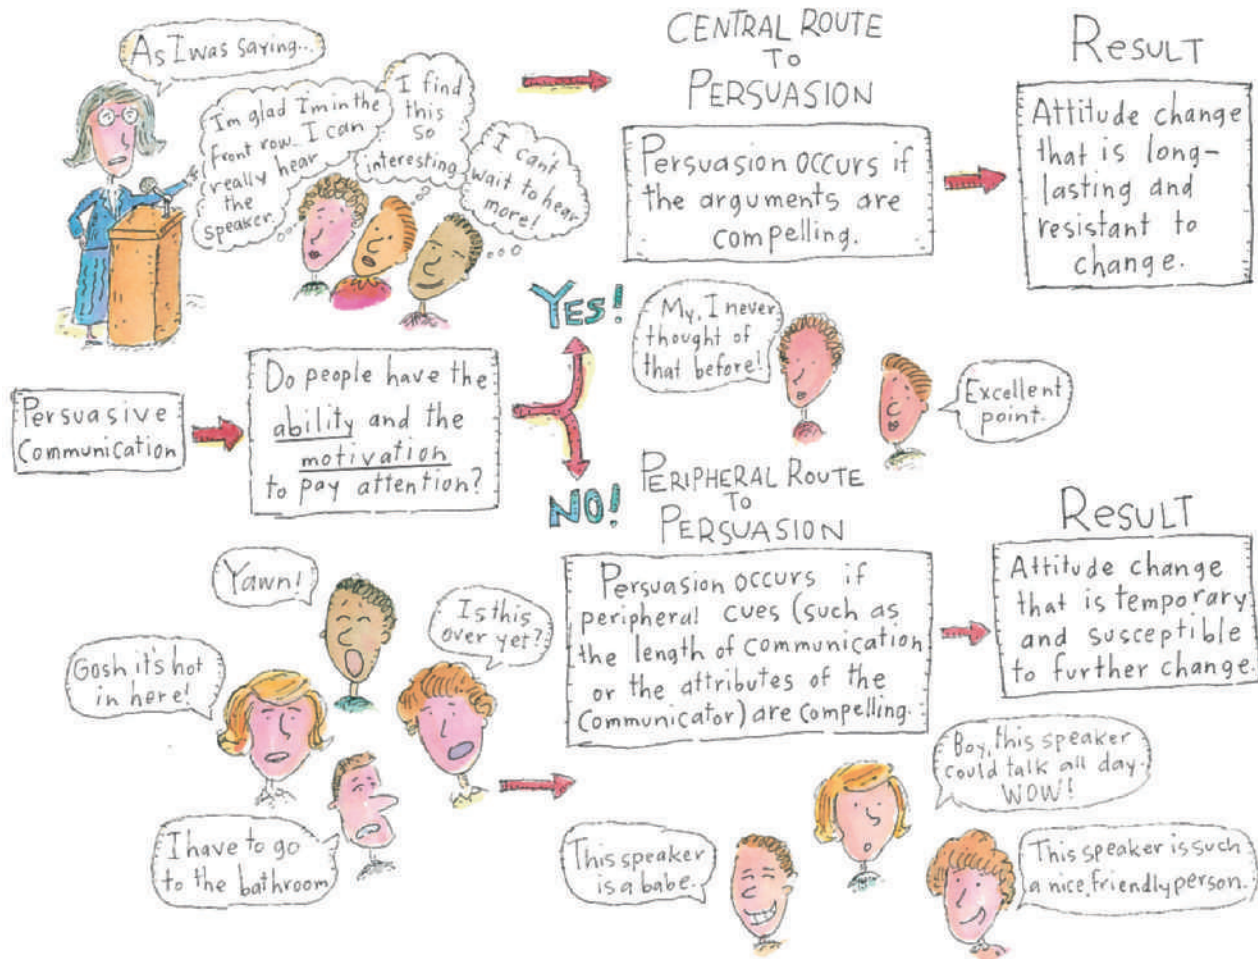 As I was saying...
I'm glad I'm in the
front row. I can
really hear
the
speaker.
I find
this
so
interesting
I can't
wait to hear
more!
CENTRAL ROUTE
TO
PERSUASION
Persuasion occurs if
the arguments are
compelling.
RESULT
Attitude change
that is long-
lasting and
resistant to
change.
Persuasive
Communication
Do people have the
ability and the
motivation
to pay attention?
YES!
NO!
My, I never
thought of
that before!
Excellent
point.
PERIPHERAL ROUTE
TO
PERSUASION
Persuasion occurs if
peripheral cues (such as
the length of communication
or the attributes of the
communicator) are compelling.
RESULT
Attitude change
that is temporary
and susceptible
to further change.
Yawn!
Is this
over yet?
Gosh it's hot
in here!
I have to go
to the bathroom
This speaker
is a babe.
Boy, this speaker
could talk all day.
WOW!
This speaker is such
a nice, friendly person.